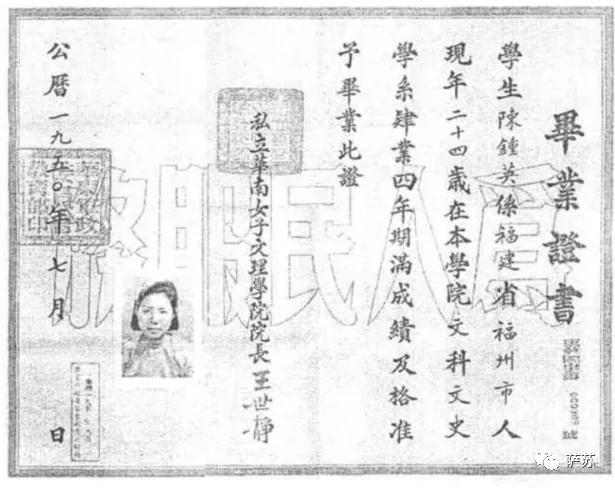 畢業證書
學生陳鍾英係福建省福州市人
現年二十四歲在本學院文科文史
學系肄業四年期滿成績及格准
予畢業此證
私立華南女子文理學院院長王世靜
公曆一九五〇年七月 日
為人民服務
號
萨苏